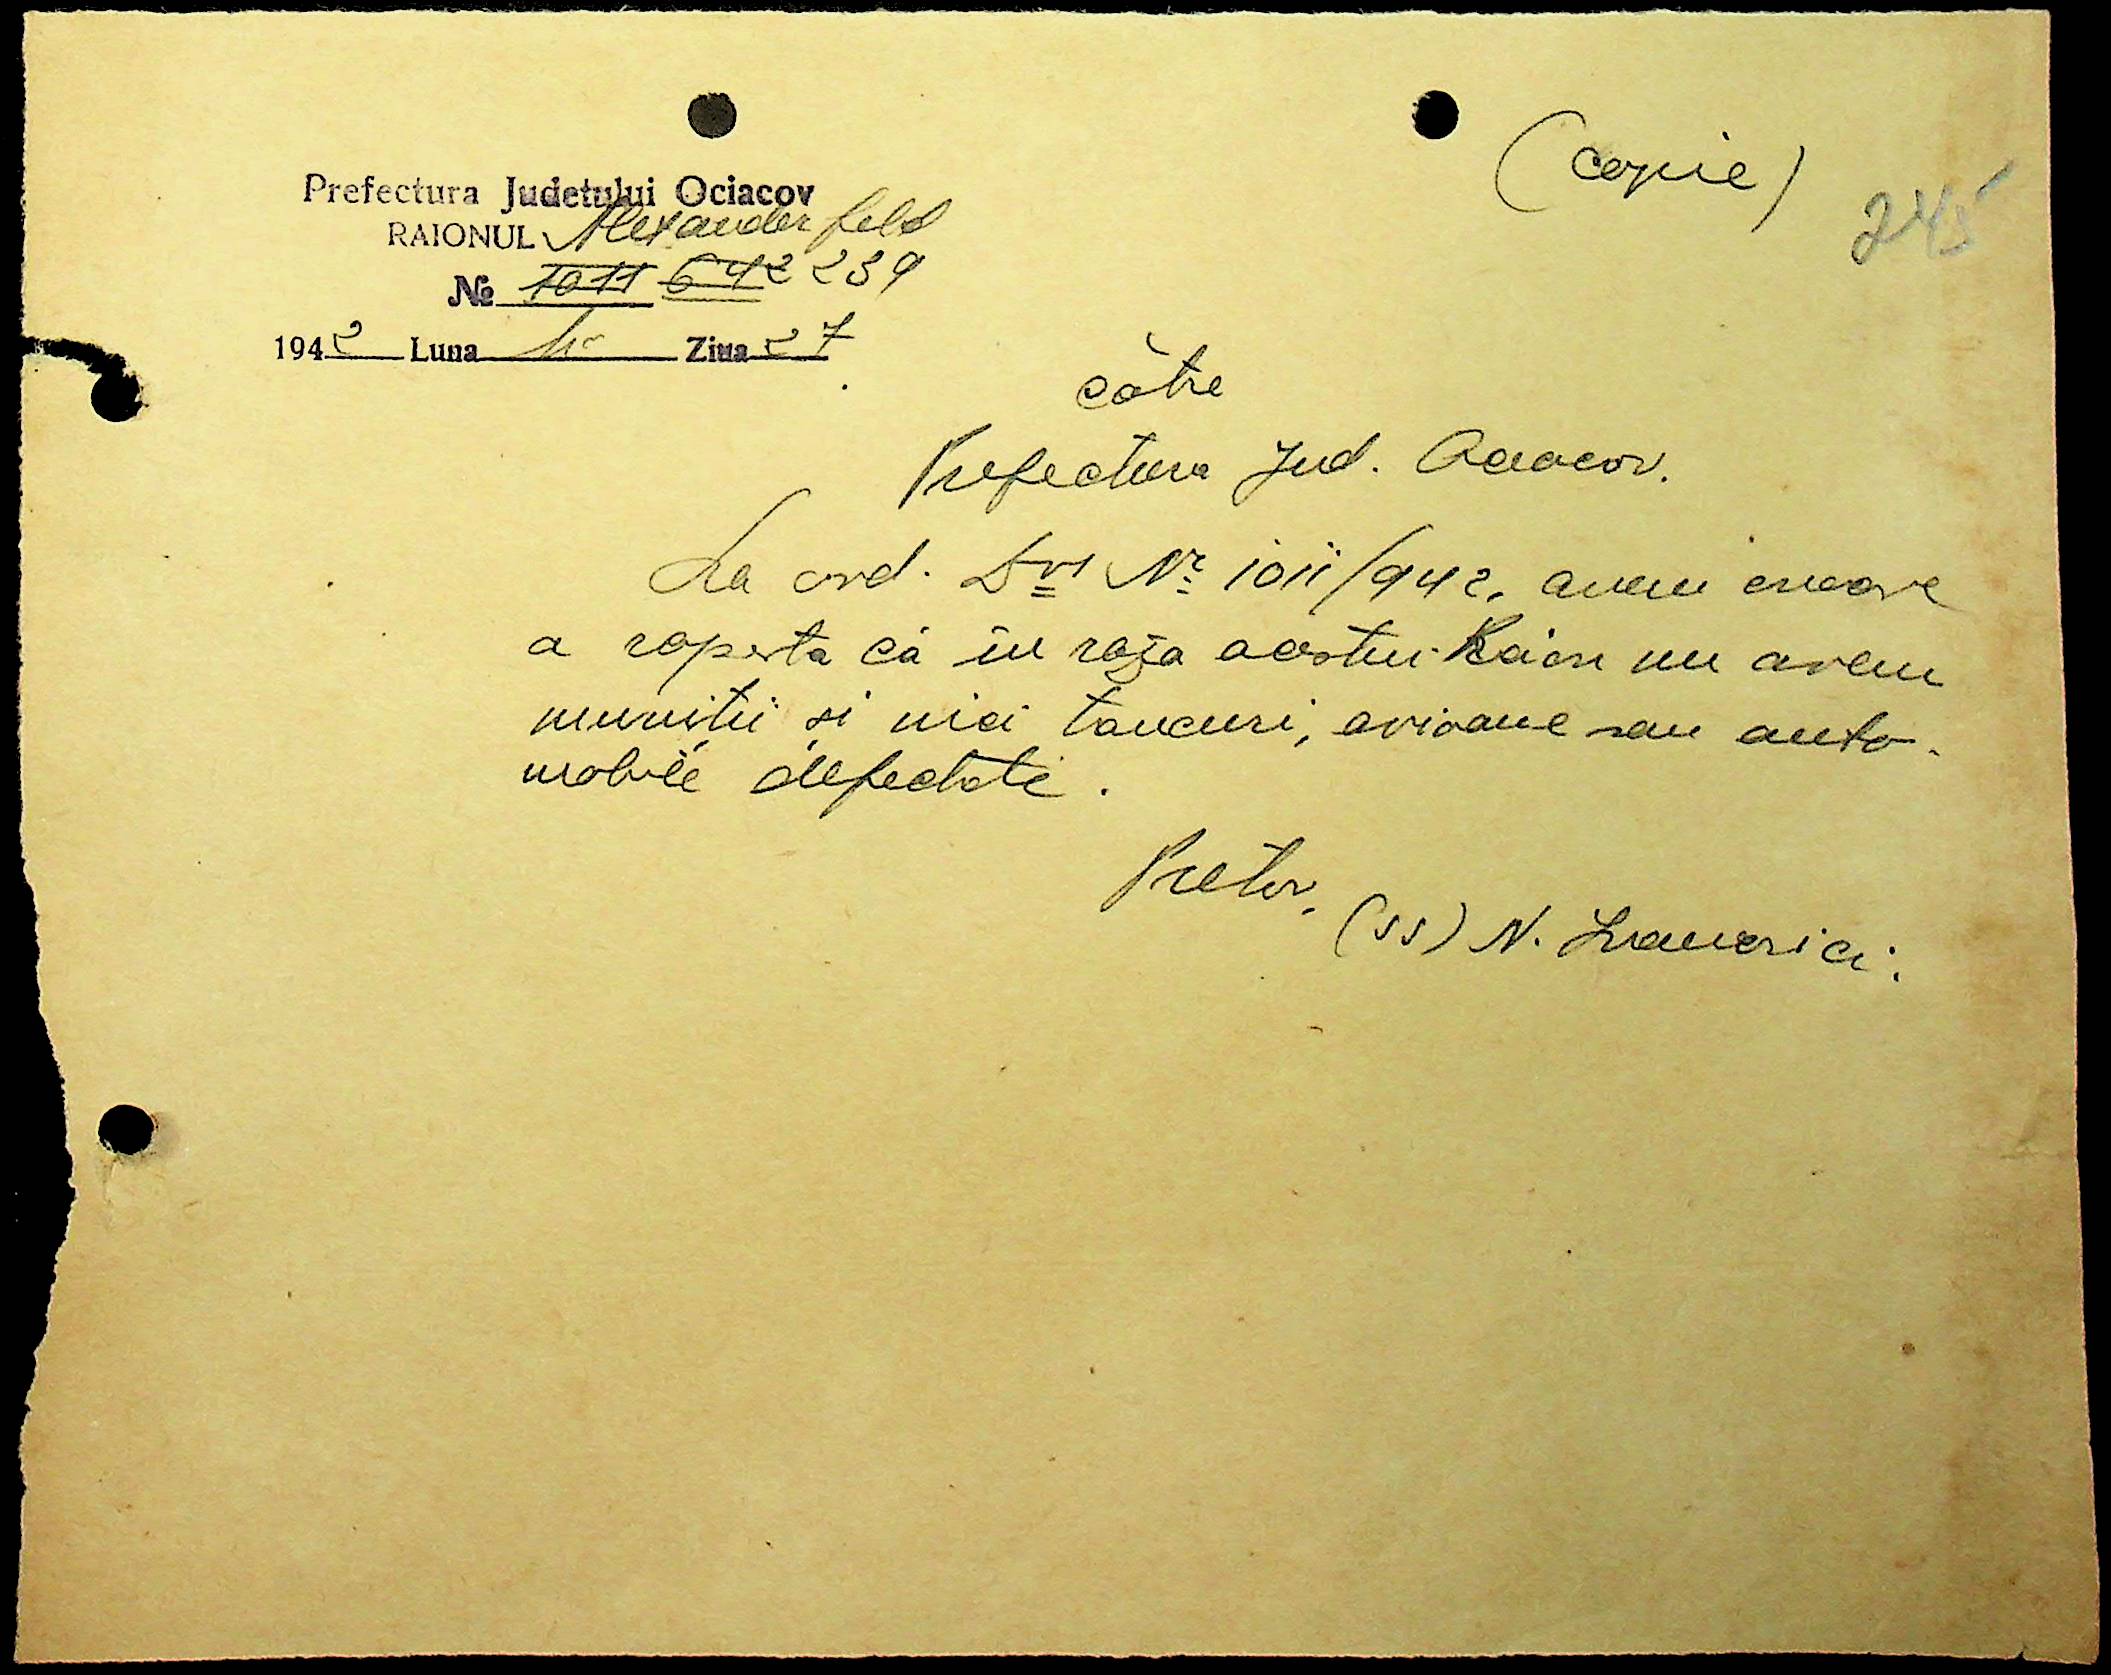 (copie)
245
Prefectura Judetului Ociacov
RAIONUL Alexanderfeld
№ 1011 642 239
1942 Luna Ziua 27
către
Prefectura Jud. Oceacov.
La ord. Dvs Nr. 1011/942, avem onoare
a raporta că în raza acestui Raion nu avem
muniții și nici tancuri, avioane sau auto-
mobile defectate.
Pretor,
(ss) N.